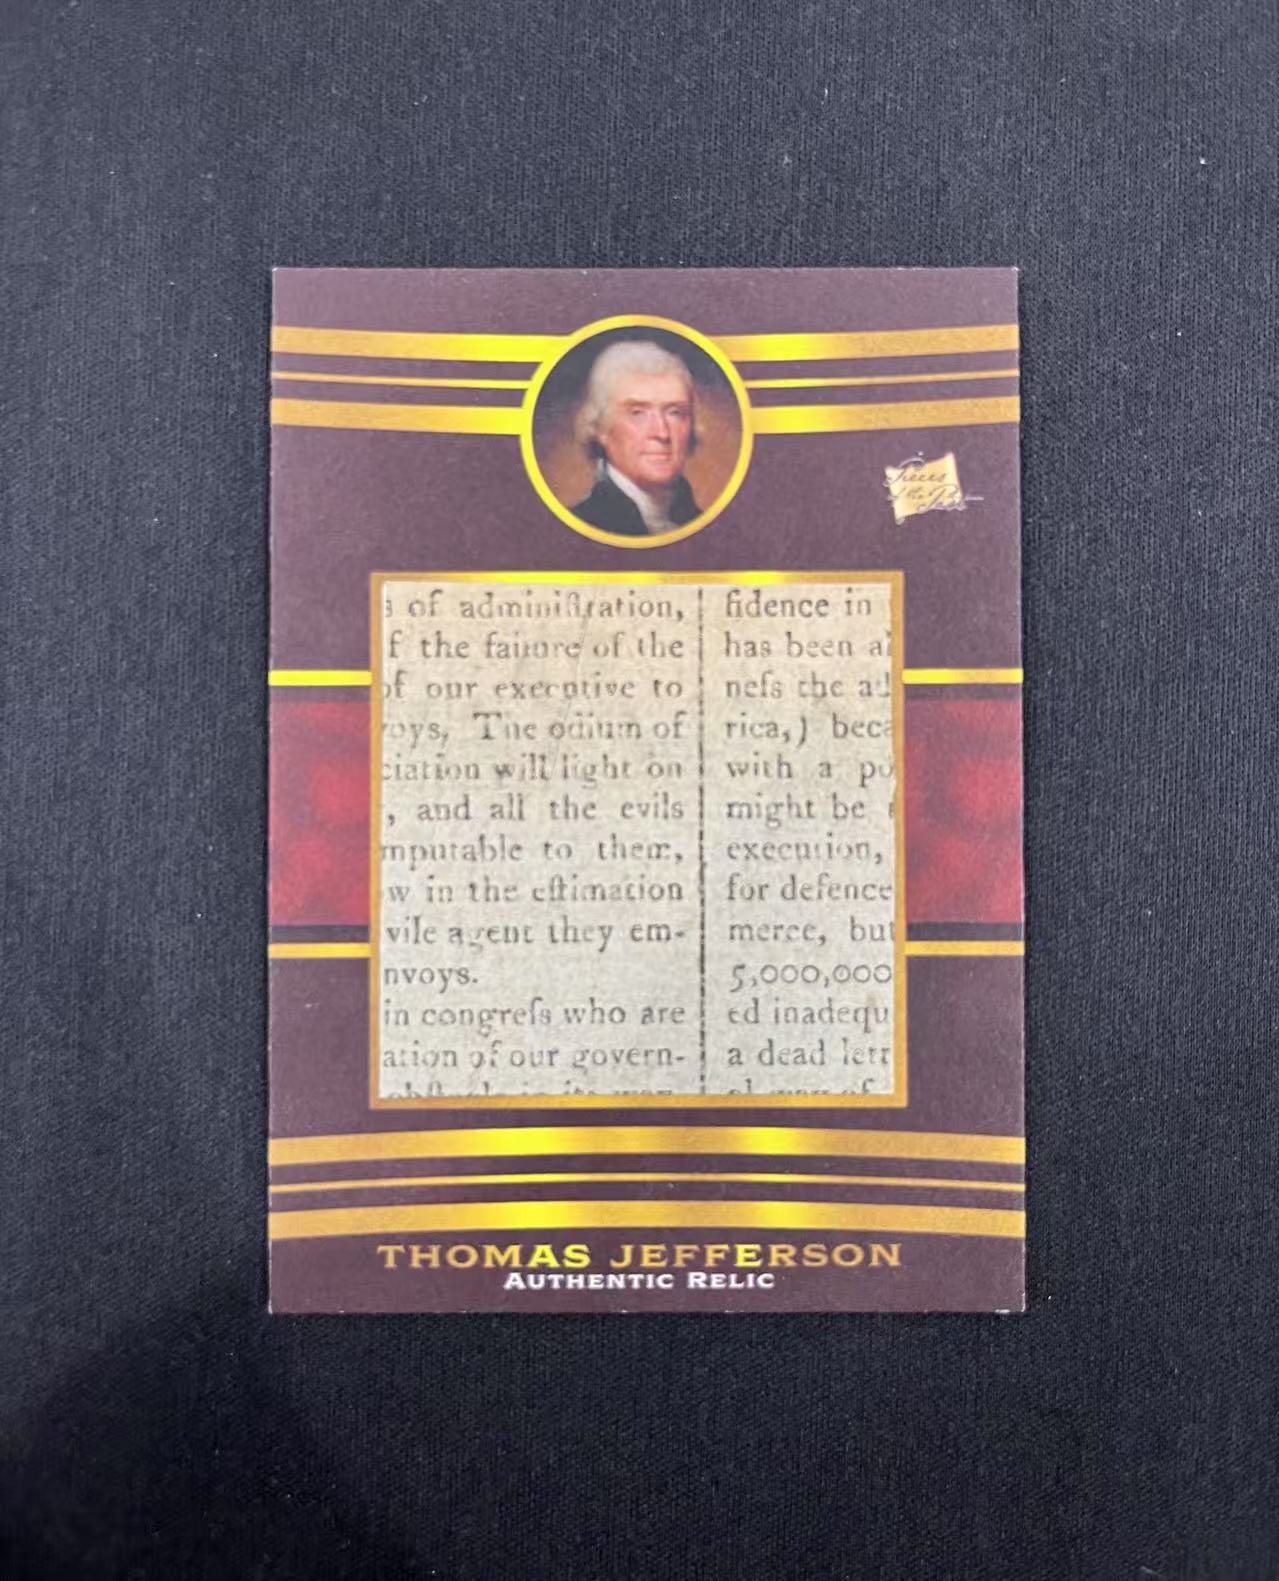 Pieces
of the Past
s of adminiſtration,
f the failure of the
of our executive to
voys, The odium of
ciation will light on
, and all the evils
mputable to them,
w in the eſtimation
vile agent they em-
nvoys.
in congreſs who are
ation of our govern-
obſtacle in its way
fidence in
has been al
neſs the ad
rica,) beca
with a po
might be
execution,
for defence
merce, but
5,000,000
ed inadequ
a dead lett
way of
THOMAS JEFFERSON
AUTHENTIC RELIC